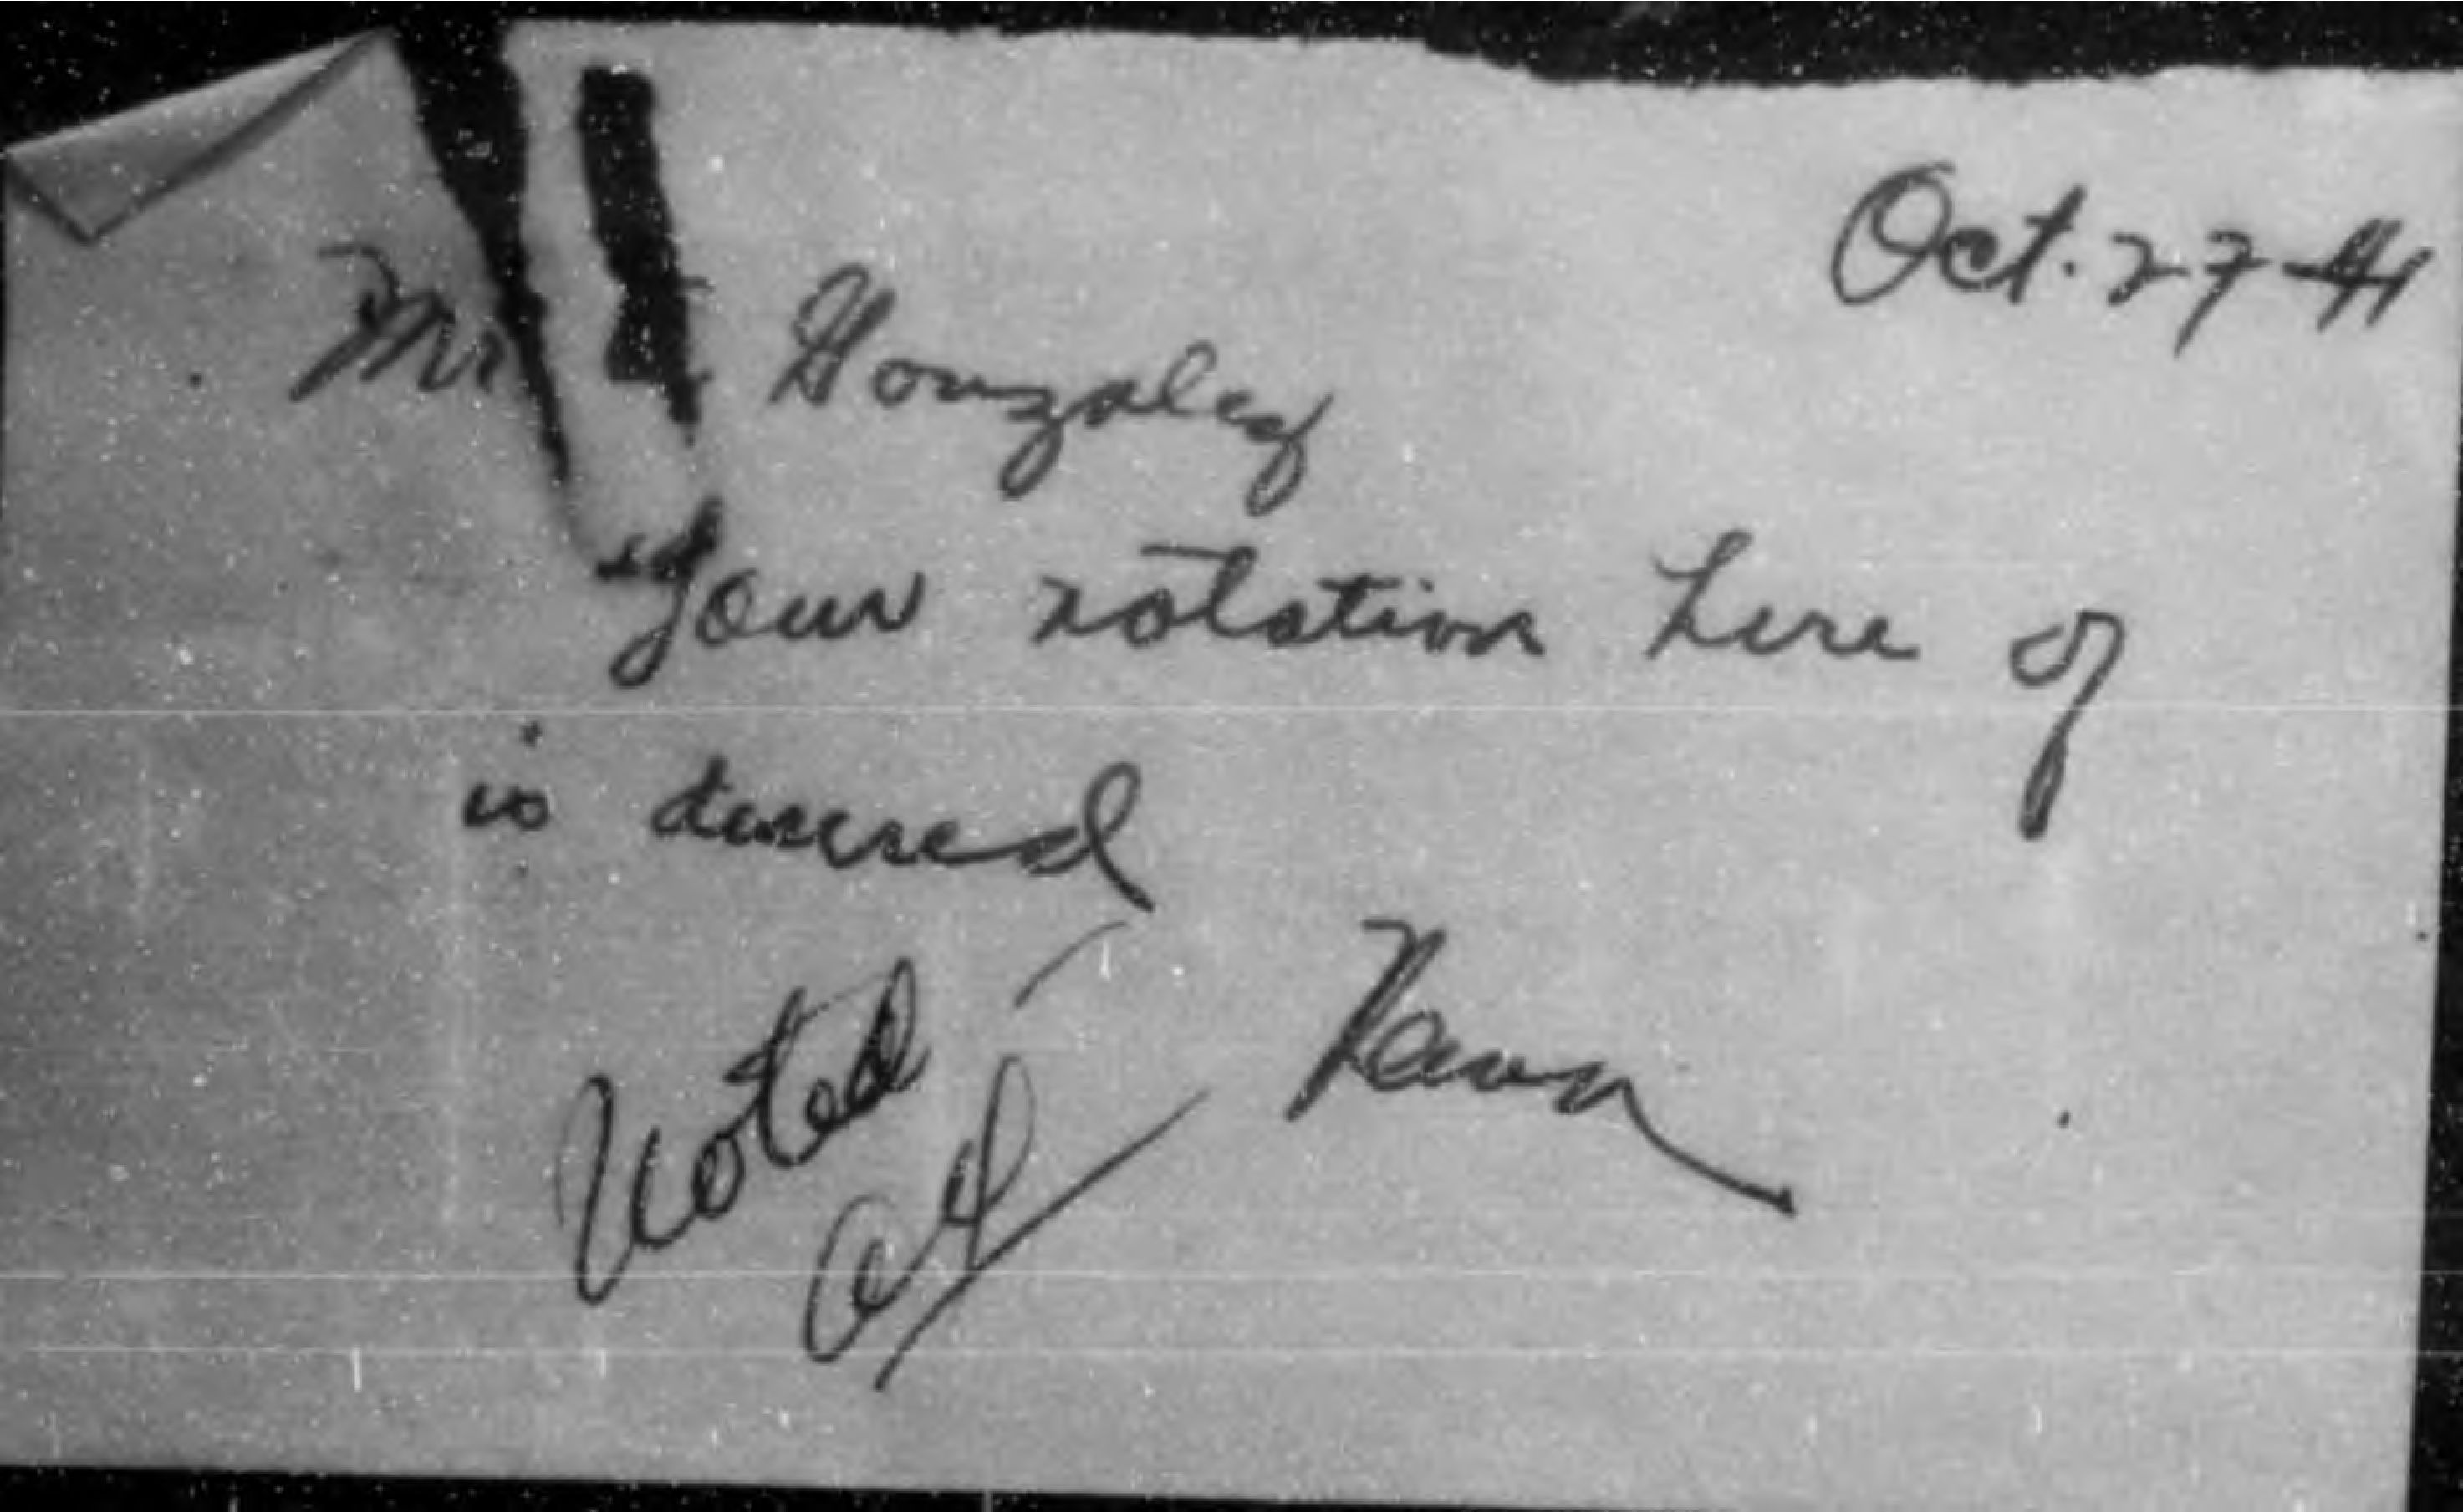 Oct. 27-41
Mr Gonzalez
Your notation here of
is desired
Noted